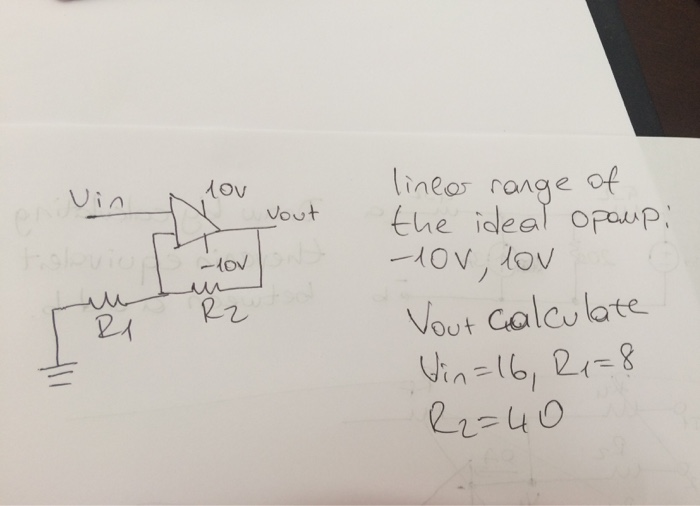 Vin
10V
Vout
-10V
R1
R2
linear range of
the ideal opamp:
-10V, 10V
Vout Calculate
Vin=16, R1=8
R2=40